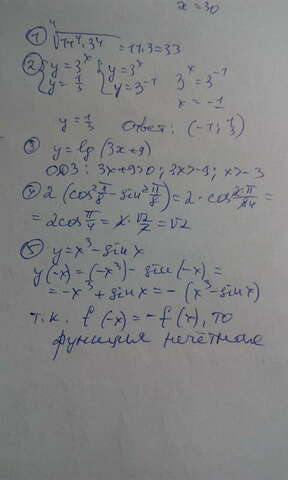 x = 30
① ⁴√(11⁴·3⁴) = 11·3 = 33
② { y = 3ˣ { y = 3ˣ 3ˣ = 3⁻¹
y = 1/3 y = 3⁻¹ x = -1
y = 1/3 Ответ: (-1; 1/3)
③ y = lg (3x+9)
ООЗ: 3x+9>0; 3x>-9; x>-3
④ 2 (cos² π/8 - sin² π/8) = 2·cos 2·π/84 =
= 2cos π/4 = 2·√2/2 = √2
⑤ y = x³ - sin x
y(-x) = (-x³) - sin(-x) =
= -x³ + sin x = -(x³ - sin x)
т.к. f(-x) = -f(x), то
функция нечётная